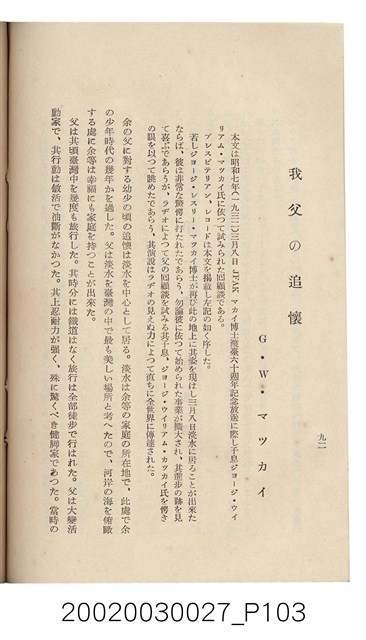 我父の追懷
G・W・マツカイ
九一
本文は昭和七年(一九三二)三月八日 JFAK マカイ博士渡臺六十週年記念放送に際し子息ジョージ・ウイ
リアム・マツカイ氏に依つて試みられた回顧談である。
プレスビテリアン、レコードは本文を揭載し左記の如く序した。
若しジョージ・レスリー・マツカイ博士が再び此の地上に其姿を現はし三月八日淡水に居ることが出來た
ならば、彼は非常な驚愕に打たれたであらう、勿論彼に依つて始められた事業が擴大され、其進步の跡を見
て喜ぶであらうが、ラヂオによつて父の回顧談を試みる其子息、ジョージ・ウイリアム・カツカイ氏を愕き
の眼を以つて眺めたであらう、其演說はラヂオの見えぬ力によつて直ちに全世界に傳達された。
余の父に對する幼少の頃の追懷は淡水を中心として居る。淡水は余等の家庭の所在地で、此處で余
の少年時代の幾年かを過した。父は淡水を臺灣の中で最も美しい場所と考へたので、河岸の海を俯瞰
する處に余等は幸福にも家庭を持つことが出來た。
父は其頃臺灣中を幾度も旅行した。其時分には鐵道はなく旅行は全部徒步で行はれた。父は大變活
動家で、其行動は敏活で油斷がなかつた。其上忍耐力が强く、殊に驚くべき健脚家であつた。當時の
20020030027_P103